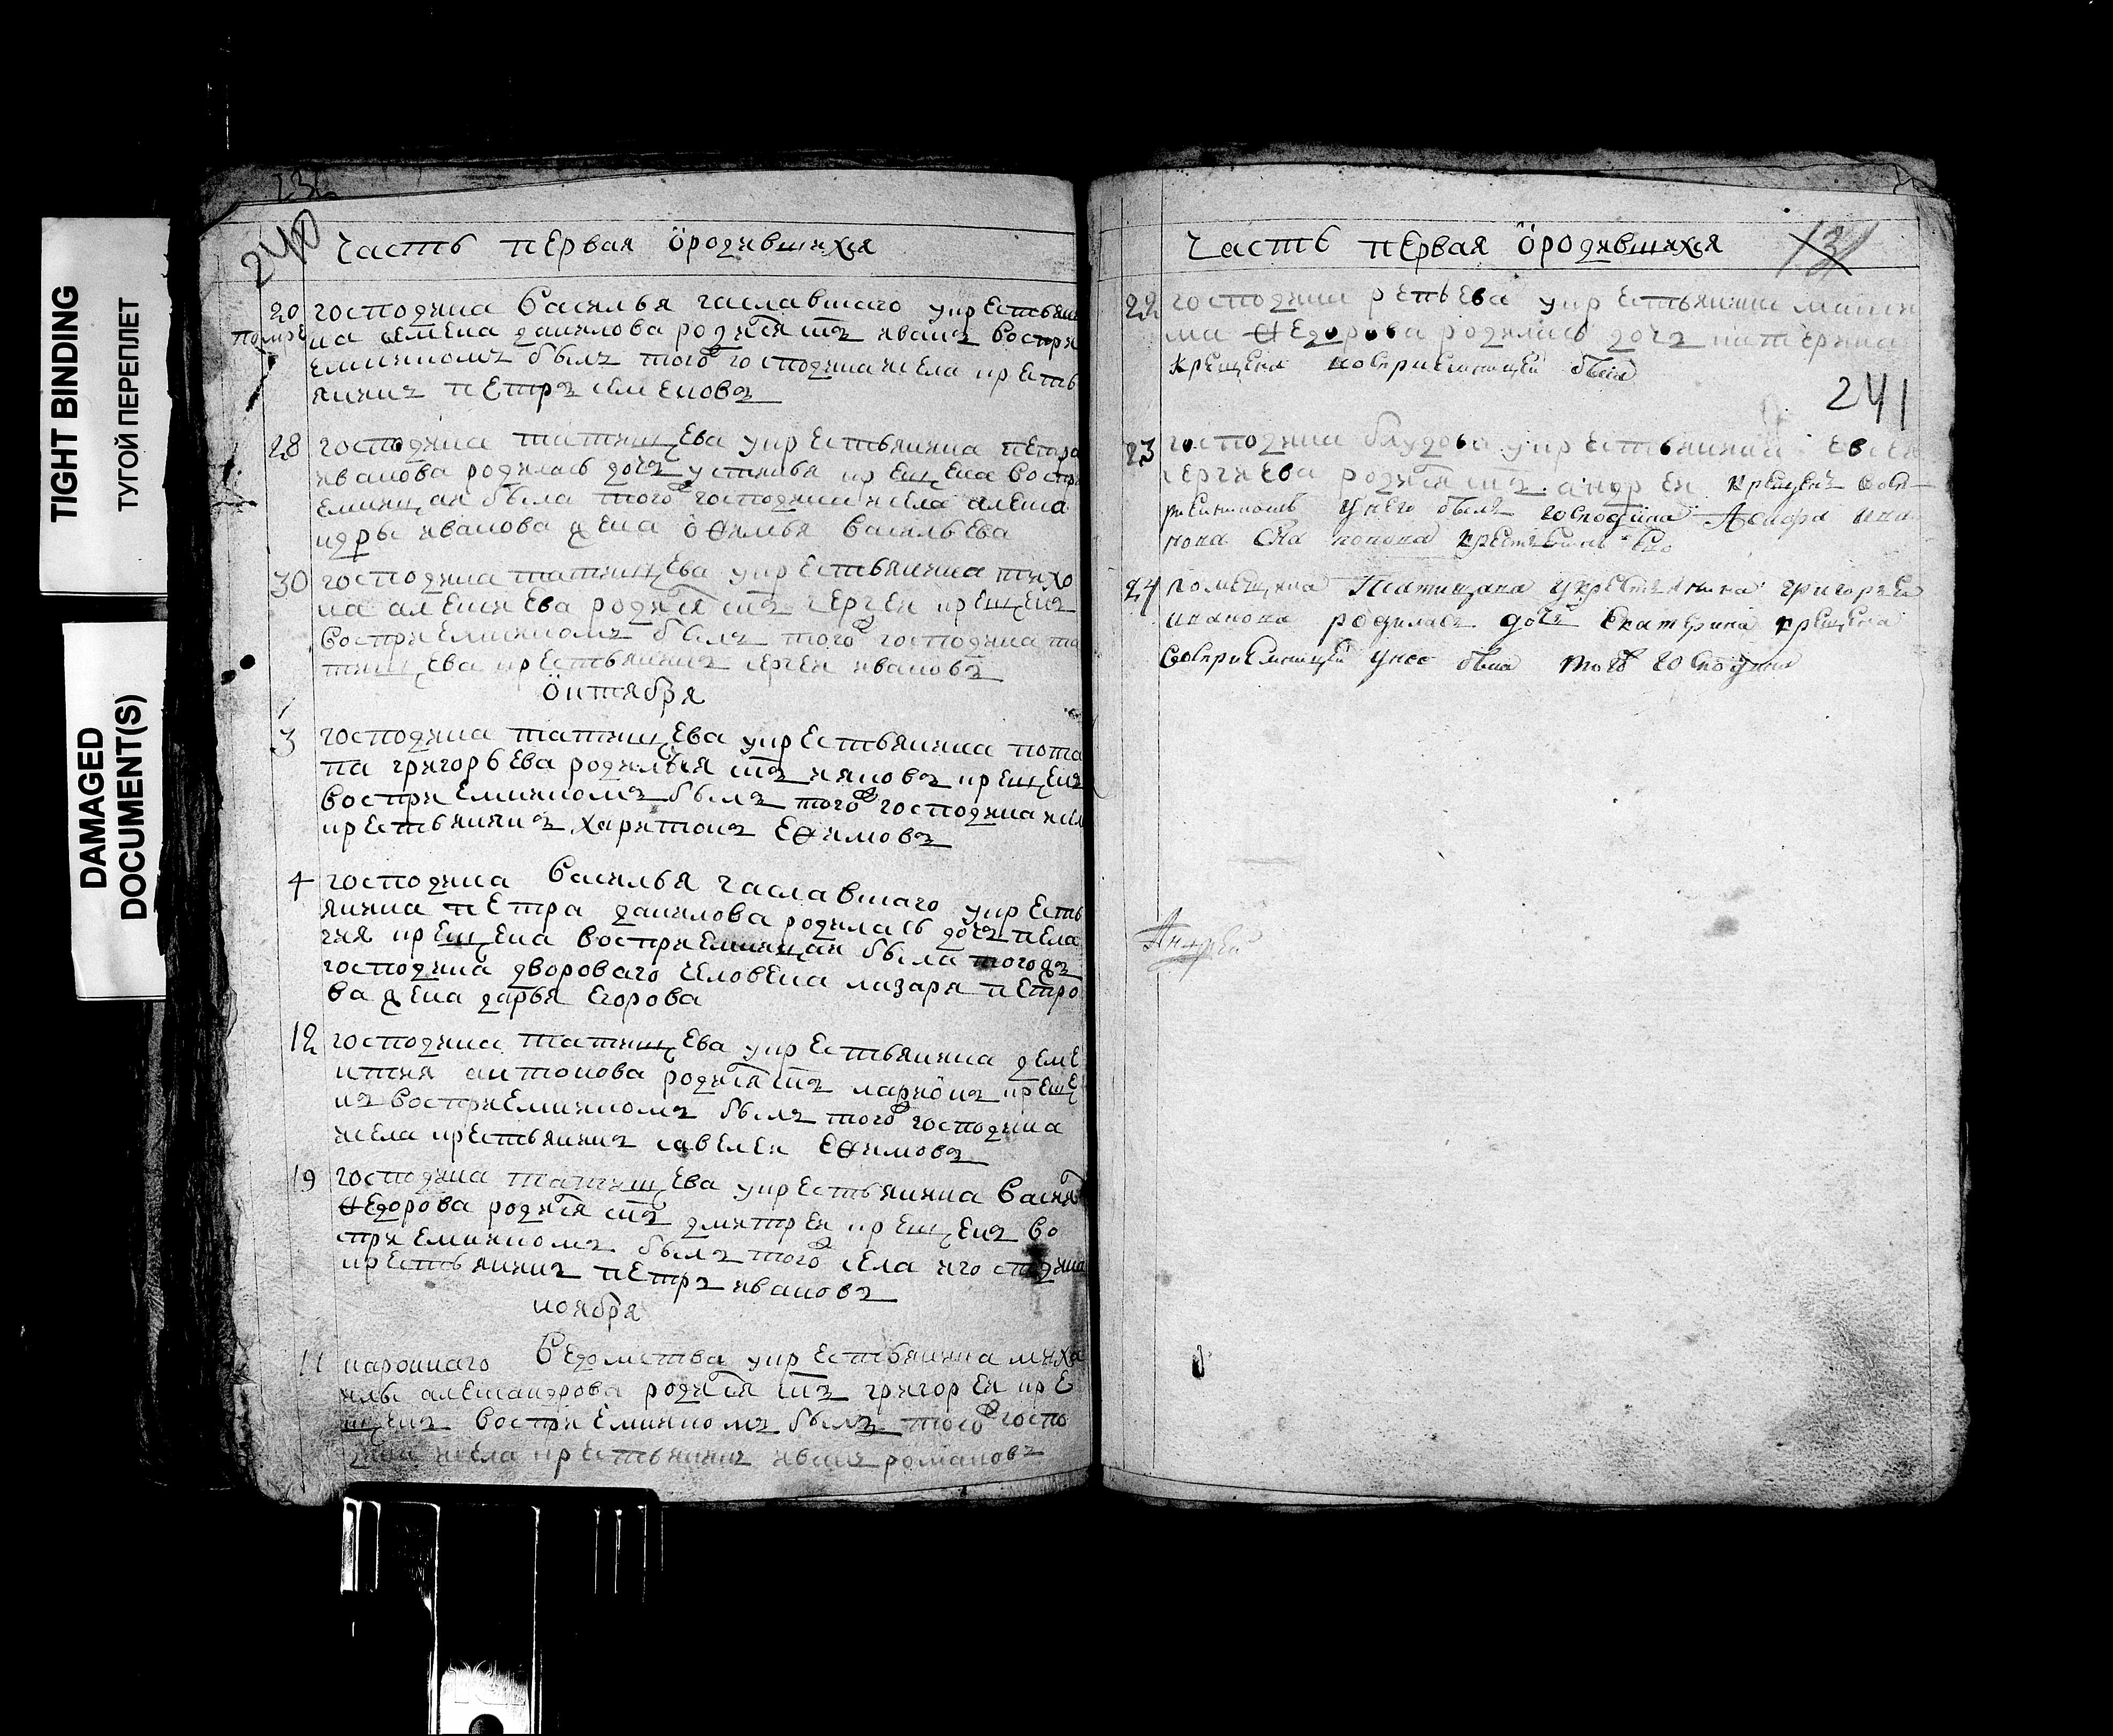 TIGHT BINDING
ТУГОЙ ПЕРЕПЛЕТ
DAMAGED
DOCUMENT(S)
240
часть первая ородившихся
20 господина василья чаславшаго укрестьяни
на семена данилова родился снъ иванъ восприе
емникомъ былъ того господина исела кресть
янинъ петръ семеновъ
28 господина татищева укрестьянина петра
иванова родилась дочь устинья крещена воспри
емницаи была того господина исела алекса
ндры иванова жена офимья васильева
30 господина татищева укрестьянина тихо
на алексиева родился снъ сергеи крещенъ
восприемникомъ былъ того господина та
тищева крестьянинъ сергеи ивановъ
октября
3 господина татищева укрестьянина пота
па григорьева родился снъ ияковъ крещенъ
восприемникомъ былъ того господина исела
крестьянинъ харитонъ ефимовъ
4 господина василья чаславшаго укресть
янина петра данилова родилась дочь пела
гия крещена восприемницаи была того
господина двороваго человека лазаря петро
ва жена дарья егорова
12 господина татищева укрестьянина деме
нтия антонова родился снъ ларионъ креще
нъ восприемникомъ былъ того господина
исела крестьянинъ савелеи ефимовъ
19 господина татищева укрестьянина василя
федорова родился снъ дмитреи крещенъ во
сприемникомъ былъ того села игосподина
крестьянинъ петръ ивановъ
ноября
11 коронаго ведомства укрестьянина миха
илы александрова родился снъ григореи кре
щенъ восприемникомъ былъ того госпо
дина исела крестьянинъ иванъ романовъ
часть первая ородившихся
131
22 господина репьева укрестьянина
ма федорова родилась дочь катерина
крещена восприемницей была
241
23 господина блудова укрестьянина евсея
сергиева родился снъ андреи крещенъ воспри
риемникомъ унего былъ господина
24 помещика Татищева укрестьянина григорея
иванова родилась дочь Екатерина крещена
восприемницей унее была того господина
Андрей